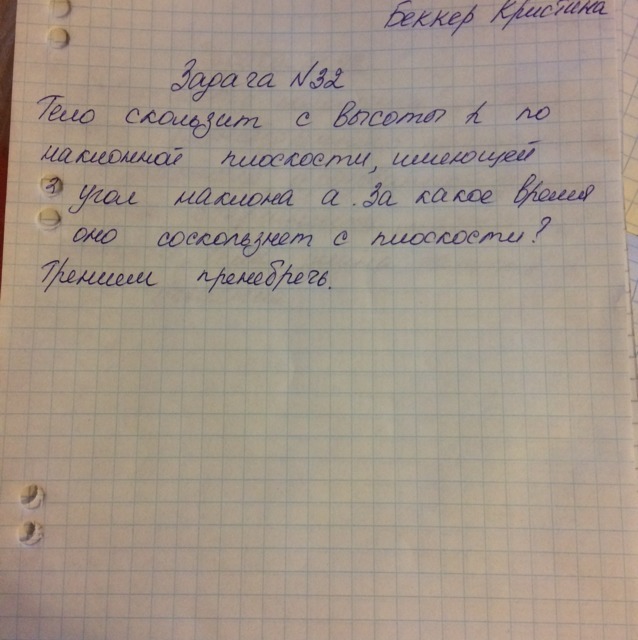 Беккер Кристина
Задача №32
Тело скользит с высоты h по
наклонной плоскости, имеющей
угол наклона а. За какое время
оно соскользнет с плоскости?
Трением пренебречь.